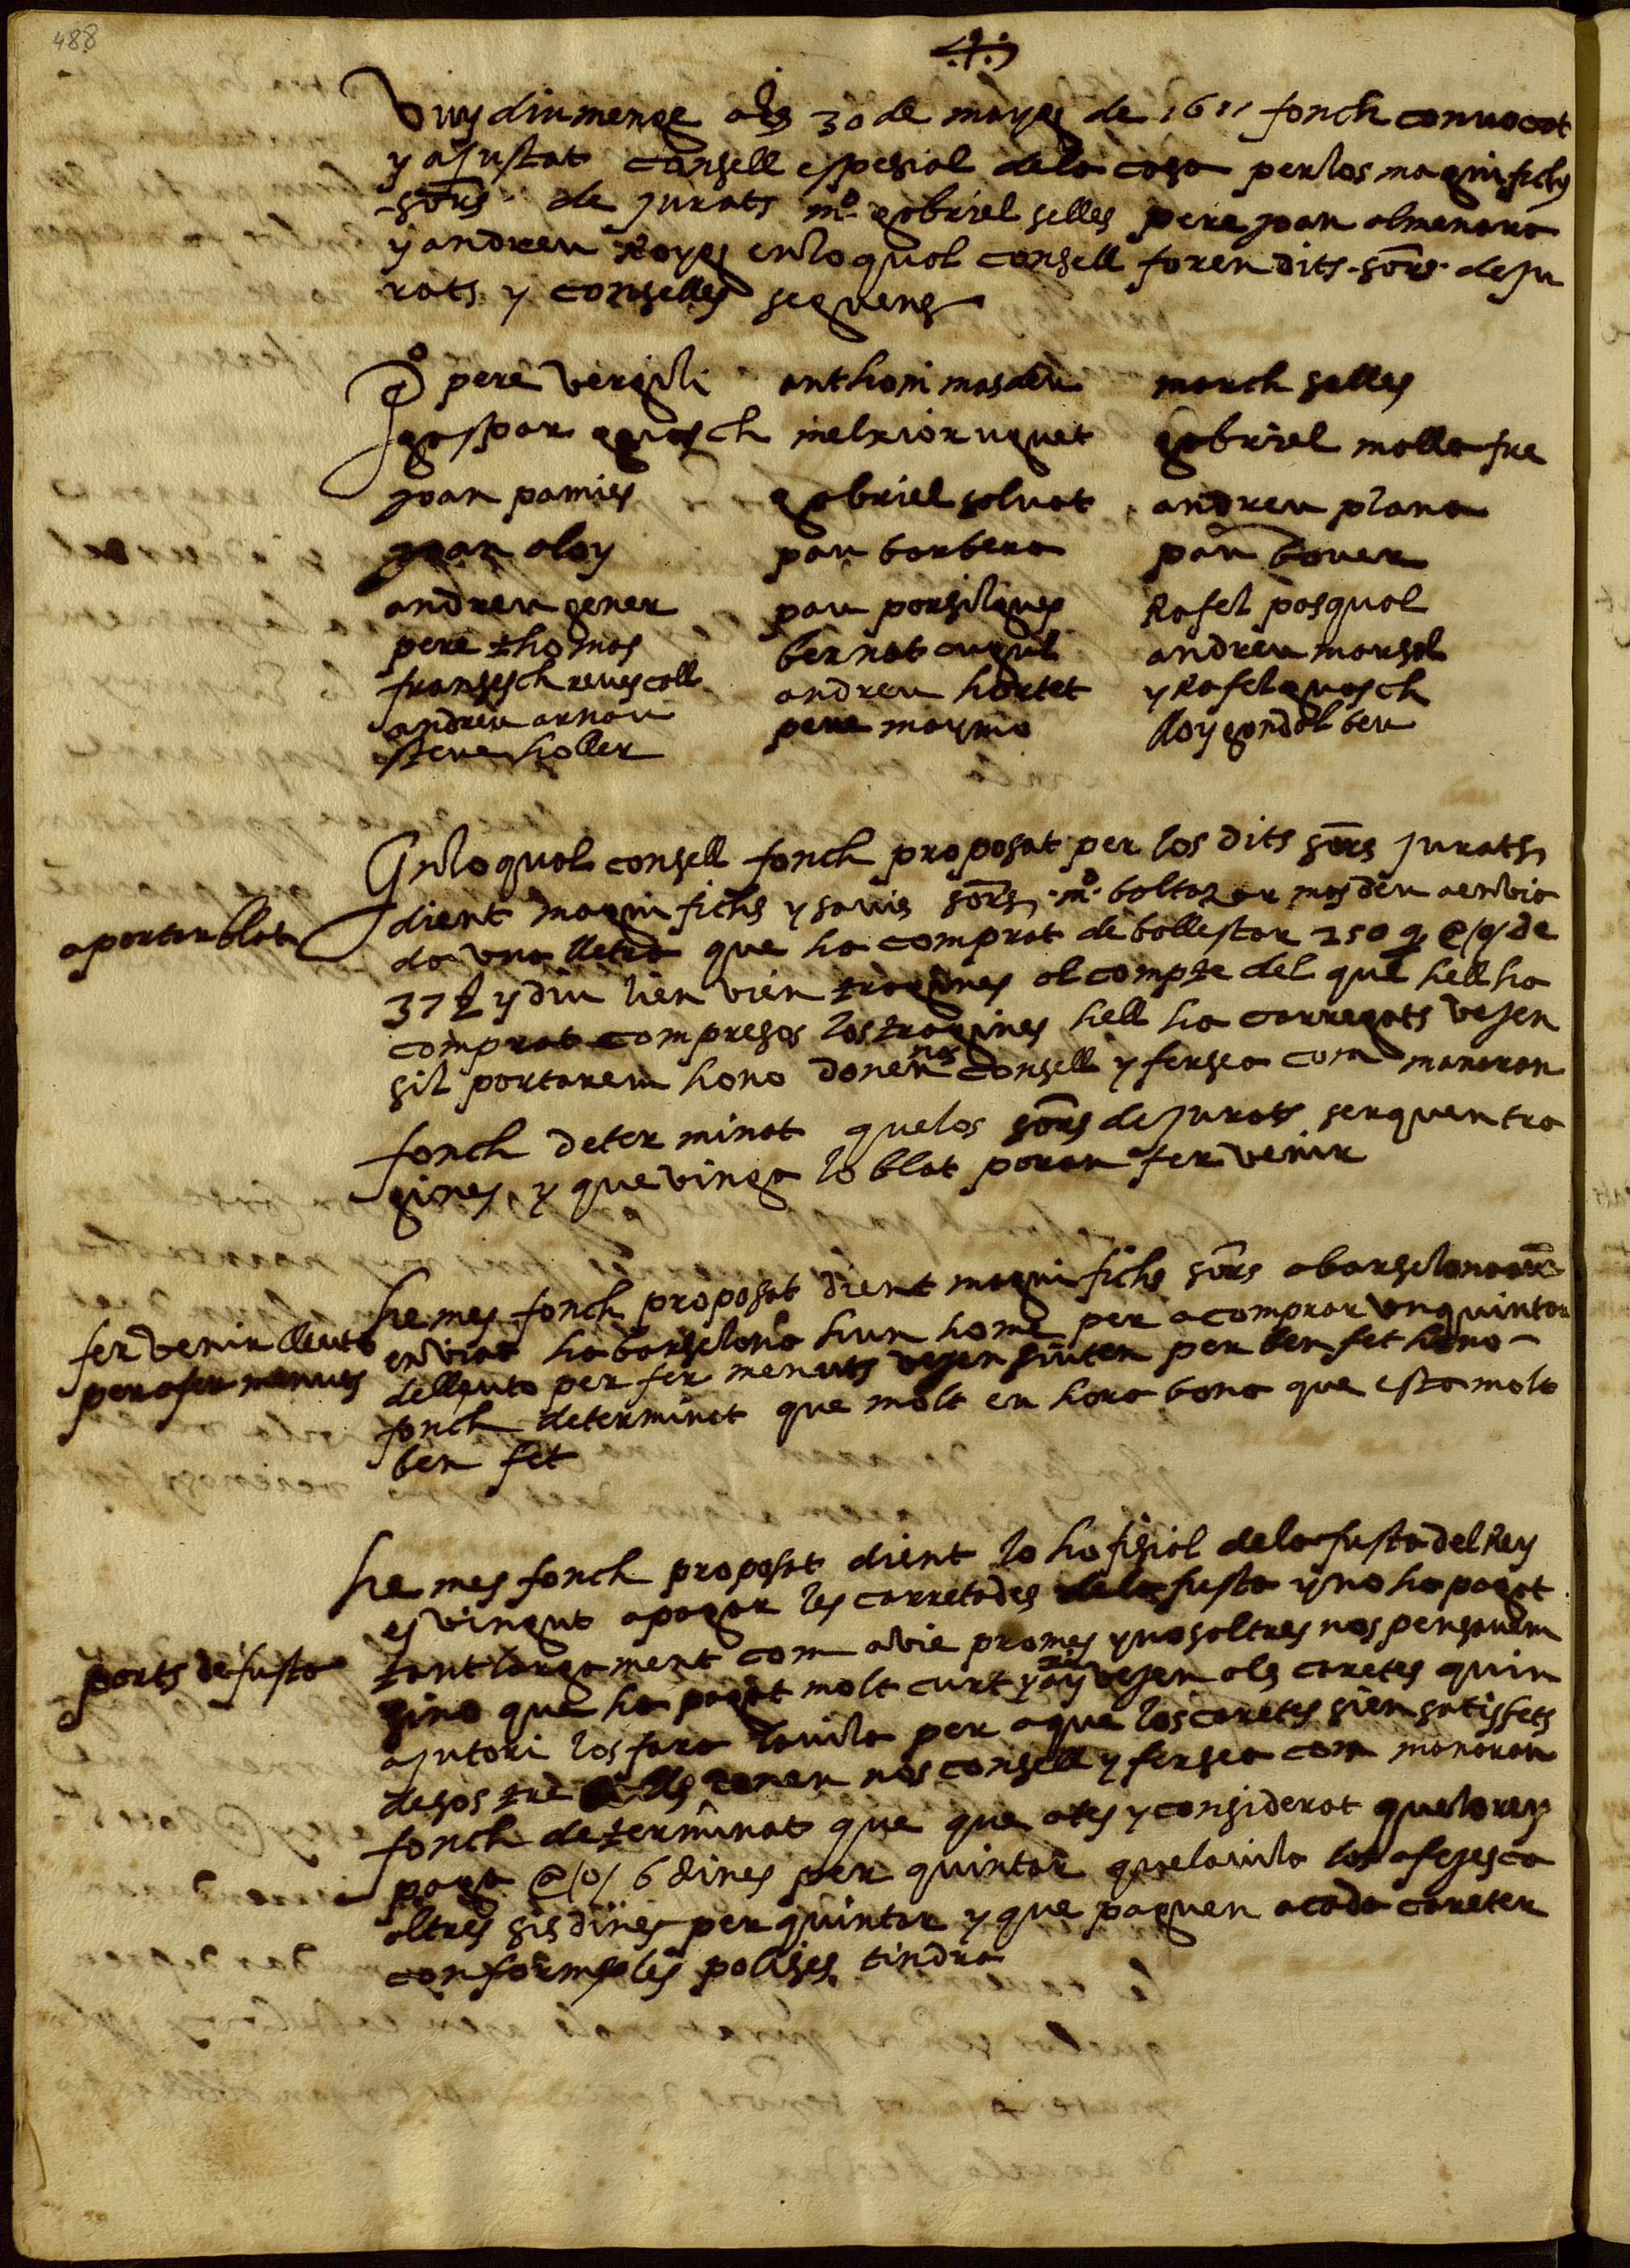 488
Vuy diumenge als 30 de mayg de 1611 fonch convocat
y ajustat consell espesial dela casa perlos magnifichs
sors de jurats mº gabriel selles pere joan almenara
y andreu Royg enlo qual consell foren dits sors de ju
rats y consellers seguens
pº pere vergili
gaspar guasch
joan pamies
joan aloy
andreu gener
pere thomas
fransesch revescall
andreu arnau
steve soller
anthoni masdeu
melxior uguet
gabriel salvat
pau barbera
pau porsilques
bernat cugul
andreu hortet
pere maymo
march salles
gabriel mallafre
andreu plana
pau bover
Rafel pasqual
andreu marsal
y Rafel guasch
lloy gondolbeu
aportar blat
Enlo qual consell fonch proposat per los dits sors jurats
dient magnifichs y savis sors mº baltazar masdeu aenvia
da una lletra que ha comprat de ballestar 250 q @ /o/ de
37 y diu lien vien tragines al compte del que hell ha
comprat compresos los tragines hell ha carregats vejen
sil portarem hono donen nos consell y fersea com manaran
fonch determinat quelos sors de jurats serquen tra
gines y que vinga lo blat poran fer venir
fer venir llauto
per afer menuts
he mes fonch proposat dient magnifichs sors abarselona
enviat ha barselona hun home per a comprar un quintar
dellauto per fer menuts vejen sinten per ben fet hono
fonch determinat que molt en hora bona que esta molt
ben fet
ports de fusta
he mes fonch proposat dient lo hofisial dela fusta del Rey
es vingut apagar les carretades dela fusta y no ha pagat
tant largament com avie promes y nosaltres nos pensavem
sino que ha pagat molt curt y vejen als caretes quin
ajutori los fara lavila per aque los caretes sien satisfets
desos tre donen nos consell y fersea com manaran
fonch determinat que que ates y considerat quelo rey
paga @ /o/ 6 dines per quintar quelavila los afegesca
altres sis dines per quintar y que paguen acada careter
conforme les polises tindra